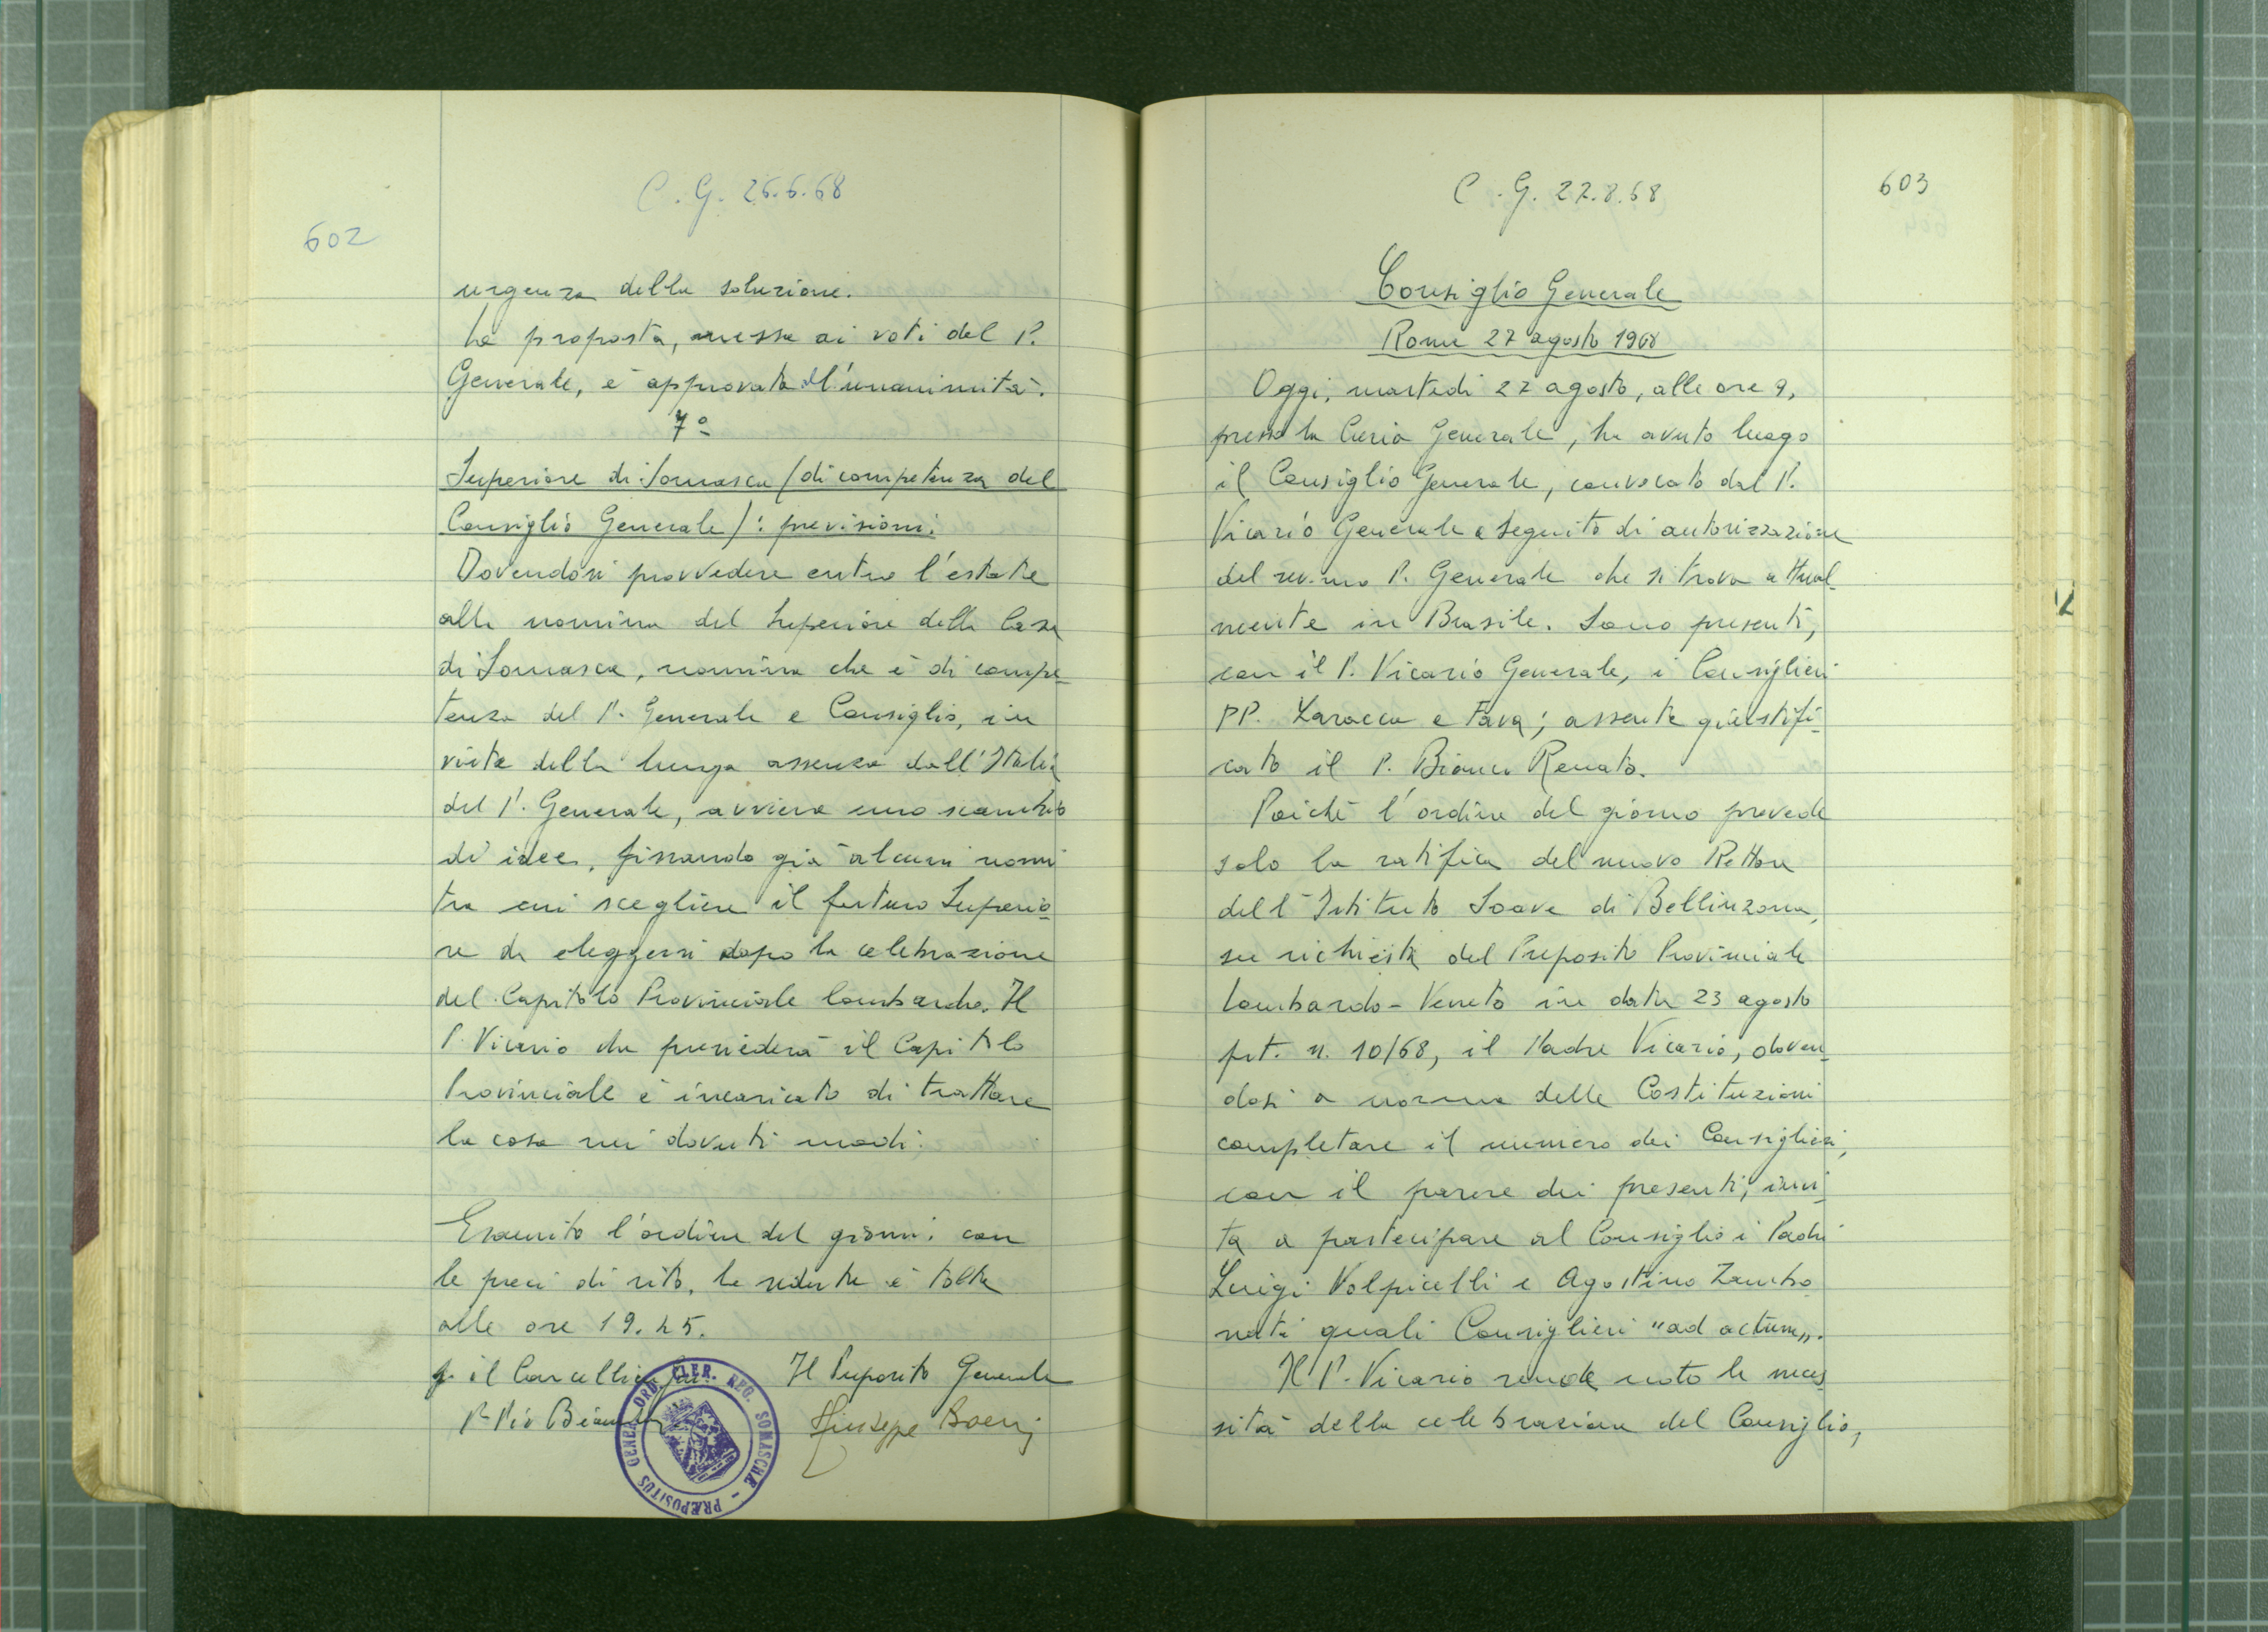 C. G. 26.6.68
602
urgenza della soluzione.
La proposta, messa ai voti dal P.
Generale, è approvata all'unanimità.
7º
Superiore di Somasca (di competenza del
Consiglio Generale): previsioni.
Dovendosi provvedere entro l'estate
alla nomina del Superiore della Casa
di Somasca, nomina che è di compe-
tenza del P. Generale e Consiglio, in
vista della lunga assenza dall'Italia
del P. Generale, avviene uno scambio
di idee, fissando già alcuni nomi
tra cui scegliere il futuro Superio-
re da eleggersi dopo la celebrazione
del Capitolo Provinciale lombardo. Il
P. Vicario che presiederà il Capitolo
Provinciale è incaricato di trattare
la cosa nei dovuti modi.
Esaurito l'ordine del giorno, con
le preci di rito, la seduta è tolta
alle ore 19.45.
p. il Cancelliere Gen. Il Preposito Generale
P. Pio Bianchini Giuseppe Boeri
PRÆPOSITUS GENER. ORD. CLER. REG. SOMASCHÆ
C. G. 27.8.68
603
Consiglio Generale
Roma 27 agosto 1968
Oggi, martedì 27 agosto, alle ore 9,
presso la Curia Generale, ha avuto luogo
il Consiglio Generale, convocato dal P.
Vicario Generale a seguito di autorizzazione
del rev.mo P. Generale che si trova attual-
mente in Brasile. Sono presenti,
con il P. Vicario Generale, i Consiglieri
PP. Laracca e Fava; assente giustifi-
cato il P. Bianco Renato.
Poichè l'ordine del giorno prevede
solo la ratifica del nuovo Rettore
dell'Istituto Soave di Bellinzona,
su richiesta del Preposito Provinciale
Lombardo-Veneto in data 23 agosto
prt. n. 10/68, il Padre Vicario, doven-
dosi a norma delle Costituzioni
completare il numero dei Consiglieri,
con il parere dei presenti, invi-
ta a partecipare al Consiglio i Padri
Luigi Volpicelli e Agostino Zambo
nati quali Consiglieri "ad actum".
Il P. Vicario rende noto la neces
sità della celebrazione del Consiglio,